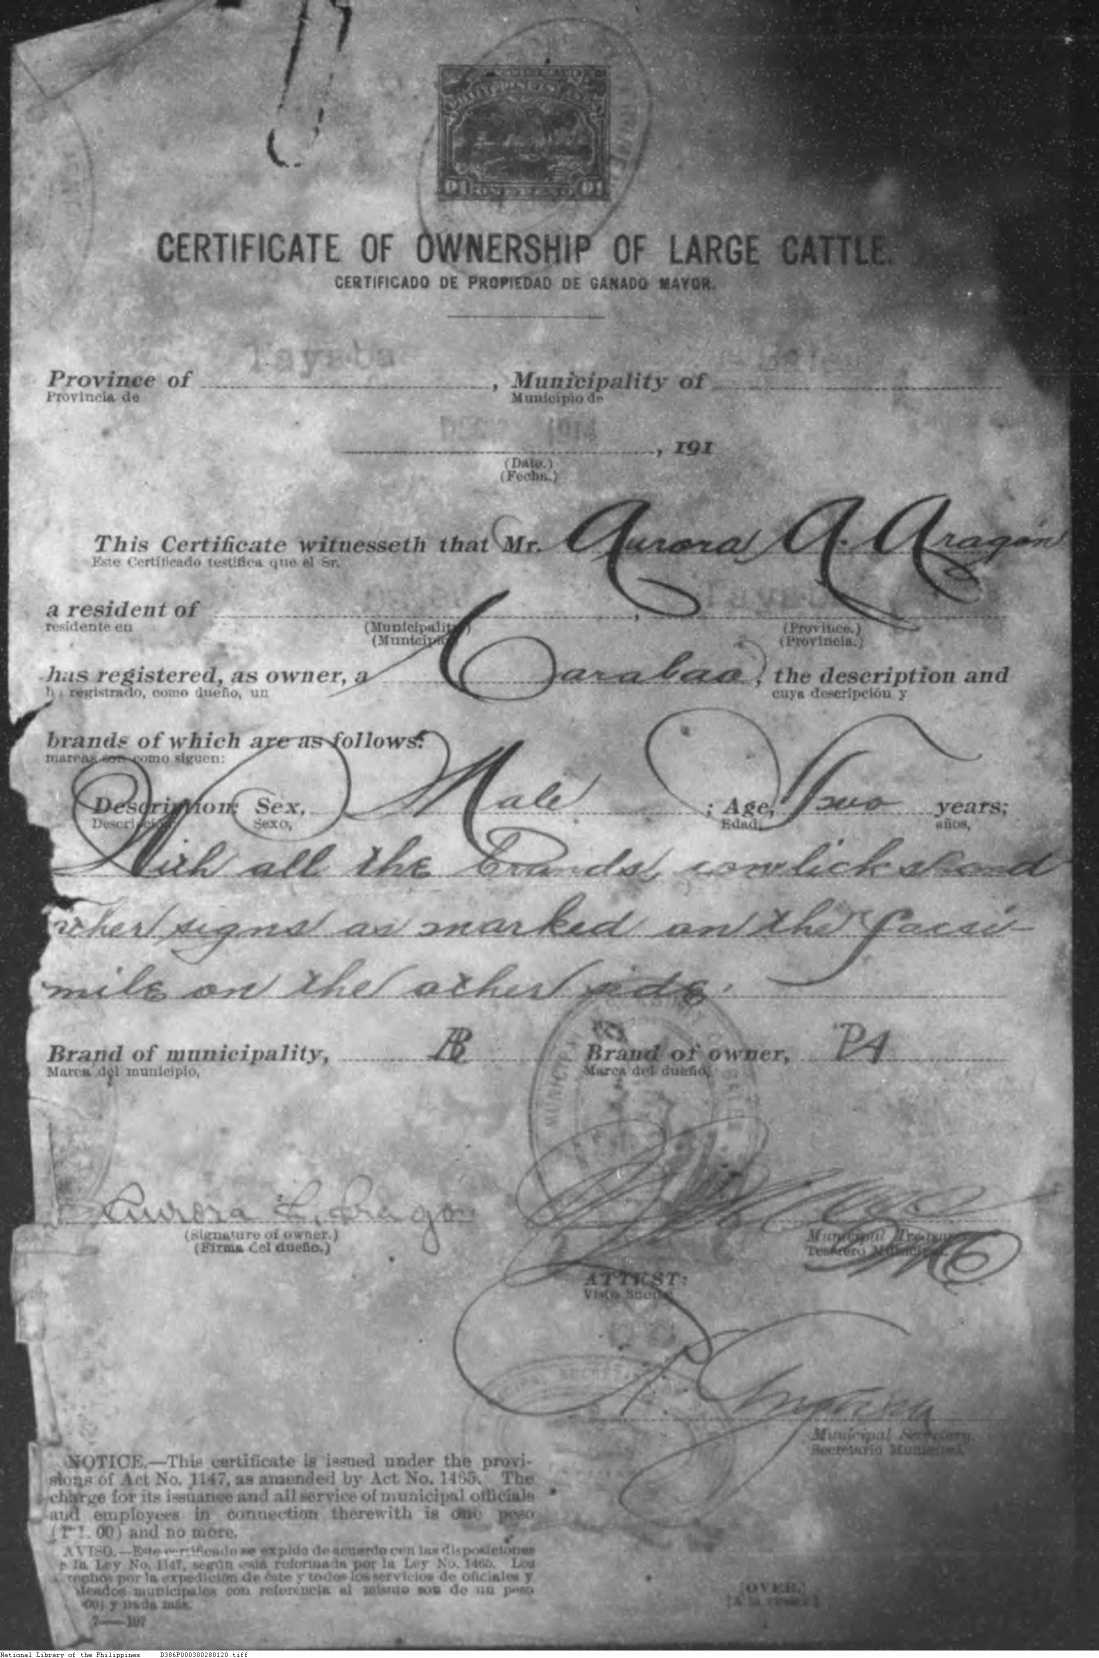 PHILIPPINE ISLANDS
01 ONE PESO 01
CERTIFICATE OF OWNERSHIP OF LARGE CATTLE.
CERTIFICADO DE PROPIEDAD DE GANADO MAYOR.
Tayabas
Province of , Municipality of
Provincia de Municipio de
1914
, 191
(Date.)
(Fecha.)
This Certificate witnesseth that Mr. Aurora A. Aragon
Este Certificado testifica que el Sr.
a resident of ,
residente en (Municipality) (Province.)
(Provincia.)
has registered, as owner, a Carabao, the description and
ha registrado, como dueño, un cuya descripción y
brands of which are as follows:
marcas son como siguen:
Description: Sex, Male ; Age, Two years;
Descripción: Sexo, Edad, años,
With all the brands, cowlicks and
other signs as marked on the facsi-
mile on the other side.
Brand of municipality, Brand of owner, PA
Marca del municipio, Marca del dueño,
Aurora Aragon
(Signature of owner.)
(Firma del dueño.)
Municipal Treasurer
Tesorero Municipal.
ATTEST:
Visto Bueno:
Municipal Secretary.
Secretario Municipal.
NOTICE.—This certificate is issued under the provi-
sions of Act No. 1147, as amended by Act No. 1465. The
charge for its issuance and all service of municipal officials
and employees in connection therewith is one peso
(₱1.00) and no more.
AVISO.—Este certificado se expide de acuerdo con las disposiciones
la Ley No. 1147, según está reformada por la Ley No. 1465. Los
por la expedición de éste y todos los servicios de oficiales y
municipales con referencia al mismo son de un peso
y nada más.
7——107
[OVER.]
National Library of the Philippines D386P000300280120.tiff